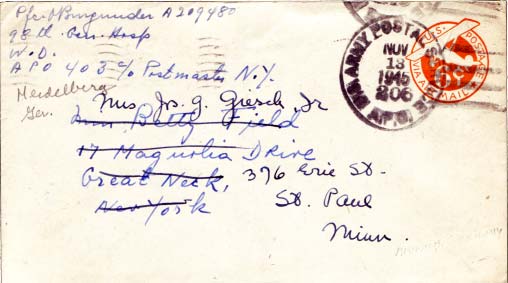 Pfc. O Burgunder A209480
98th Gen. Hosp
W.D.
APO 403 % Postmaster N.Y.
Heidelberg
Ger.
U.S. ARMY POSTAL
NOV
13
1945
206
A.P.O.
U.S. POSTAGE
6¢
VIA AIR MAIL
Mrs Jos. G. Giesch, Jr
Miss Betty Field
17 Magnolia Drive
Great Neck,
New York
376 Erie St.
St. Paul
Minn.